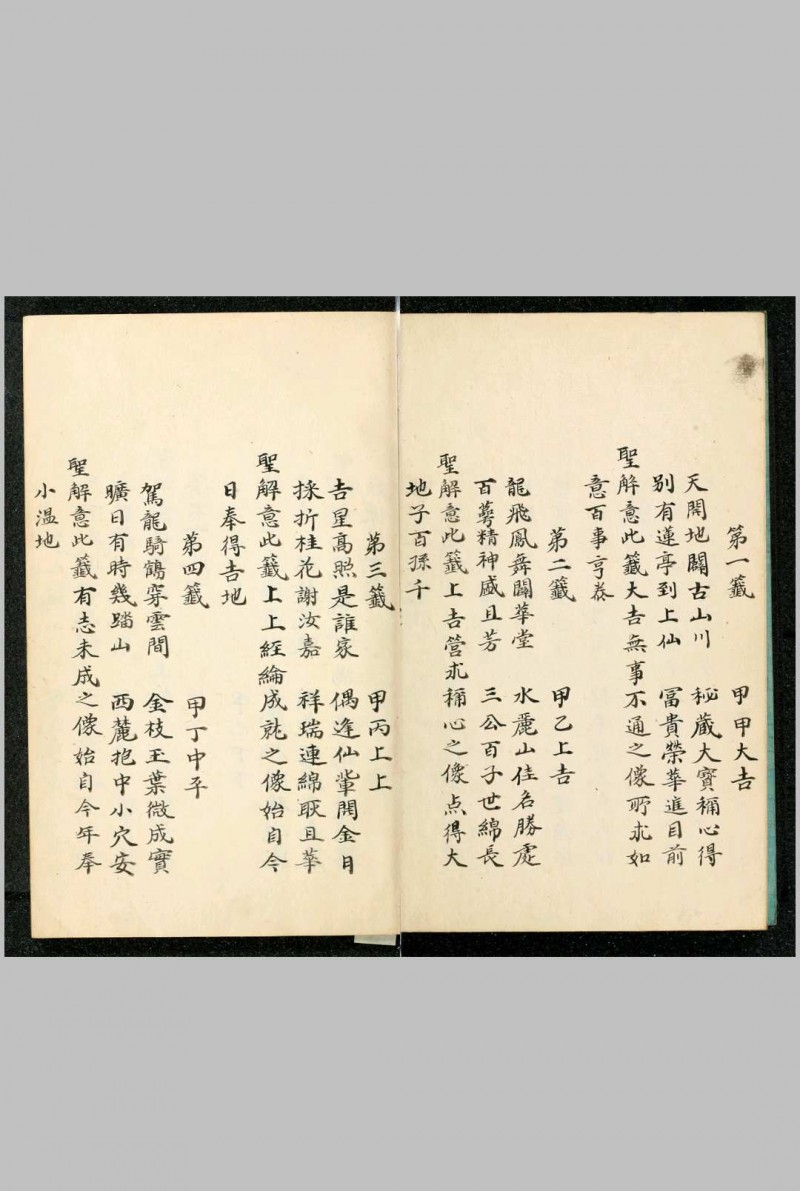 第一籤 甲甲大吉
天開地闢古山川 秘藏大寶稱心得
別有蓮亭到上仙 冨貴榮華進目前
聖解意此籤大吉無事不通之像所求如
意百事亨泰
第二籤 甲乙上吉
龍飛鳳舞闢華堂 水麗山佳名勝處
百蕚精神盛且芳 三公百子世綿長
聖解意此籤上吉營求稱心之像点得大
地子百孫千
第三籤 甲丙上上
吉星高照是誰家 偶逢仙輦開金日
採折桂花謝汝嘉 祥瑞連綿耿且華
聖解意此籤上上經綸成就之像始自今
日奉得吉地
第四籤 甲丁中平
駕龍騎鶴穿雲間 金枝玉葉微成實
曠日有時幾踏山 西麓抱中小穴安
聖解意此籤有志未成之像始自今年奉
小温地